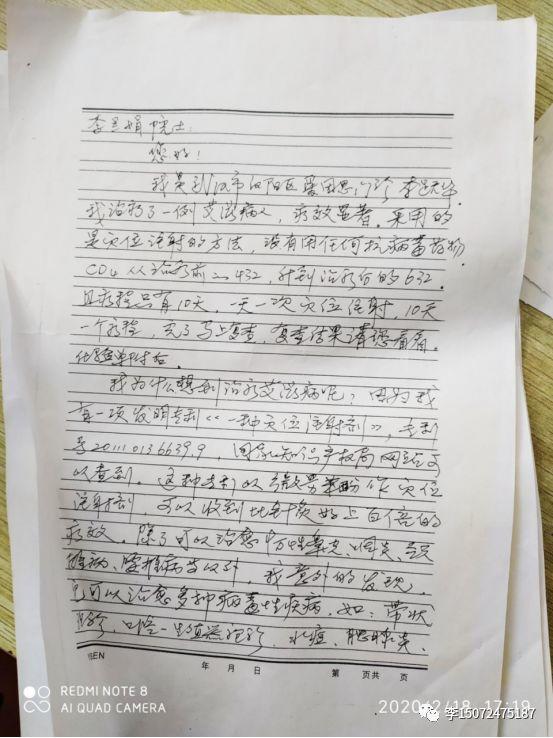 李兰娟院士:
您好!
我是武汉市汉阳区爱因思门诊李跃华。
我治疗了一例艾滋病人,疗效显著。采用的
是穴位注射的方法,没有用任何抗病毒药物。
CD4从治疗前的432,升到治疗后的632。
且疗程只有10天,一天一次穴位注射,10天
一个疗程,完了马上复查,复查结果请您看看。
化验单附后。
我为什么想到治疗艾滋病呢?因为我
有一项发明专利《一种穴位注射剂》,专利
号201110136639.9,国家知识产权局网站可
以查到。这种专利以微量苯酚作穴位
注射剂,可以收到比针灸好上百倍的
疗效,除了可以治愈慢性鼻炎、咽炎、颈
椎病、腰椎病等以外,我意外的发现,
它可以治愈多种病毒性疾病,如:带状
疱疹、口唇生殖器疱疹、水痘、腮腺炎、
BEN 年 月 日 第 页共 页
REDMI NOTE 8
AI QUAD CAMERA
2020/2/18 17:19
李15072475187